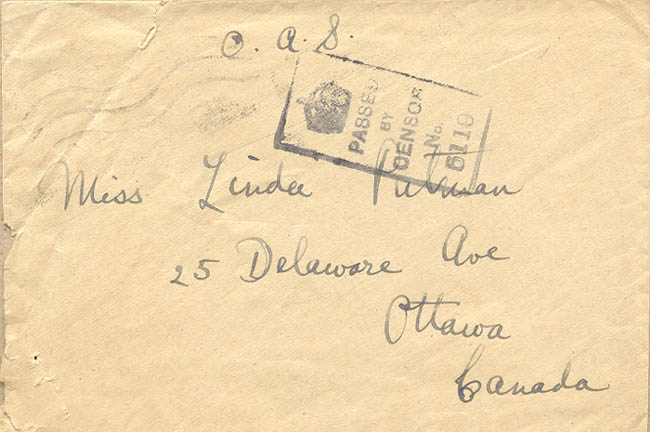 O. A. S.
PASSED
BY
CENSOR
No.
Miss Linda Putman
25 Delaware Ave
Ottawa
Canada